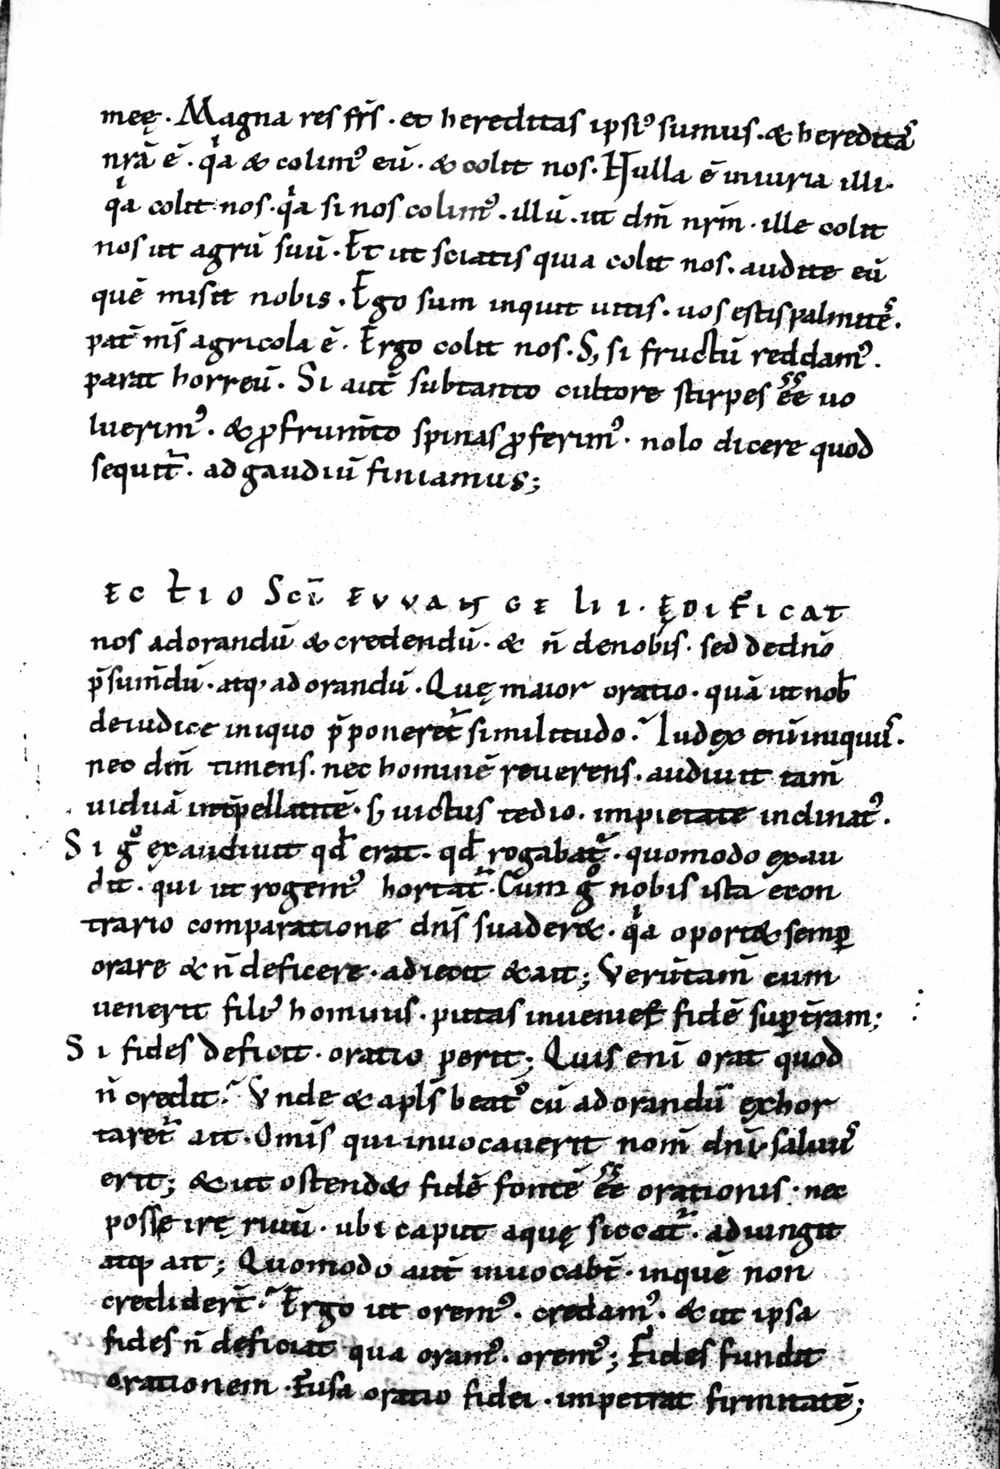 meę. Magna res fr̄s. et hereditas ipsi᾿ sumus. & heredita᷒
nr̄a ē. qͥa & colim᾿ eū. & colit nos. Nulla ē iniuria illi.
qͥa colit nos. qͥa si nos colim᾿. illū. ut dm̄ nrm̄. ille colit
nos ut agrū suū. Et ut sciatis quia colit nos. audite eū
quē misit nobis. Ego sum inquit uitis. uos estis palmite᷒.
pat̄ ms̄ agricola ē. Ergo colit nos. S; si fructū reddam᾿.
parat horreū. Si aut̄ sub tanto cultore stirpes ēē uo
luerim᾿. & ꝓ frum̄to spinas ꝓferim᾿. nolo dicere quod
sequit᷑. ad gaudiū finiamus;
ECTIO SCĪ EVVANGELII. ĘDIFICAT
nos adorandū & credendū. & n̄ denobis. sed de dn̄o
p̄sum̄dū. atq; adorandū. Quę maior oratio. quā ut nob̄
de iudice iniquo p̄poneret᷑ similitudo? Iudex enī iniquu᷒.
nec dm̄ timens. nec hominē reuerens. audiuit tam̄
uiduā int̄pellantē. s; uictus tedio. impietate inclinat᾿.
Si gͦ exaudiuit qd̄ erat. qd̄ rogabat᷑. quomodo exau
dit. qui ut rogem᾿ hortat᷑. Cum gͦ nobis ista econ
trario comparatione dn̄s suader&. qͥa oport& semꝑ
orare & n̄ deficere. adiecit & ait; Verūtam̄ cum
uenerit fili᾿ hominis. putas inueniet fidē sup t̄ram;
Si fides deficit. oratio perit; Quis enī orat quod
n̄ credit? Vnde & apl̄s beat᾿ cū adorandū exhor
taret᷑ ait. Omīs qui inuocauerit nom̄ dn̄i saluu᷒
erit; & ut ostend& fidē fontē ēē orationis. nec
posse irę riuū. ubi caput aquę siccat᷑. adiungit
atq; ait; Quomodo aut̄ inuocabt̄. in quē non
credidert̄? Ergo ut orem᾿. credam᾿. & ut ipsa
fides n̄ deficiat qua oram᾿. orem᾿; Fides fundit
orationem. Fusa oratio fidei. impetrat firmitatē;